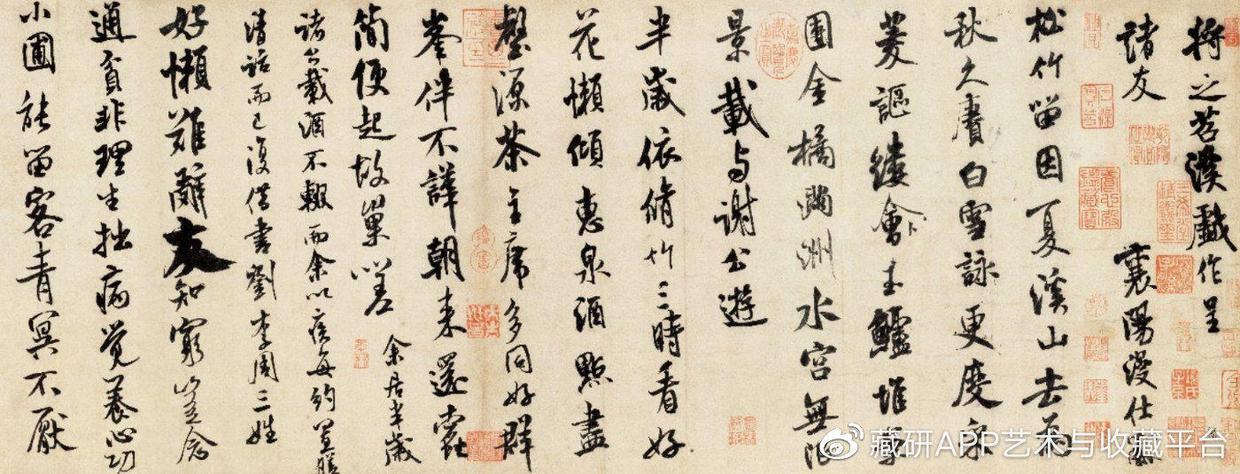 將之苕溪戲作呈
諸友
襄陽漫仕黻
松竹留因夏溪山去為
秋久賡白雪詠更度采
菱謳縷會玉鱸堆案
團金橘滿洲水宮無限
景載與謝公遊
半歲依脩竹三時看好
花懶傾惠泉酒點盡
壑源茶主席多同好群
峯伴不譁朝来還蠹
簡便起故巢嗟
余居半歲
諸公載酒不輟而余以疾每約置膳
清話而已復借書劉李周三姓
好懶難辭友知窮豈念
通貧非理生拙病覺養心功
小圃能留客青冥不厭
藏研APP艺术与收藏平台